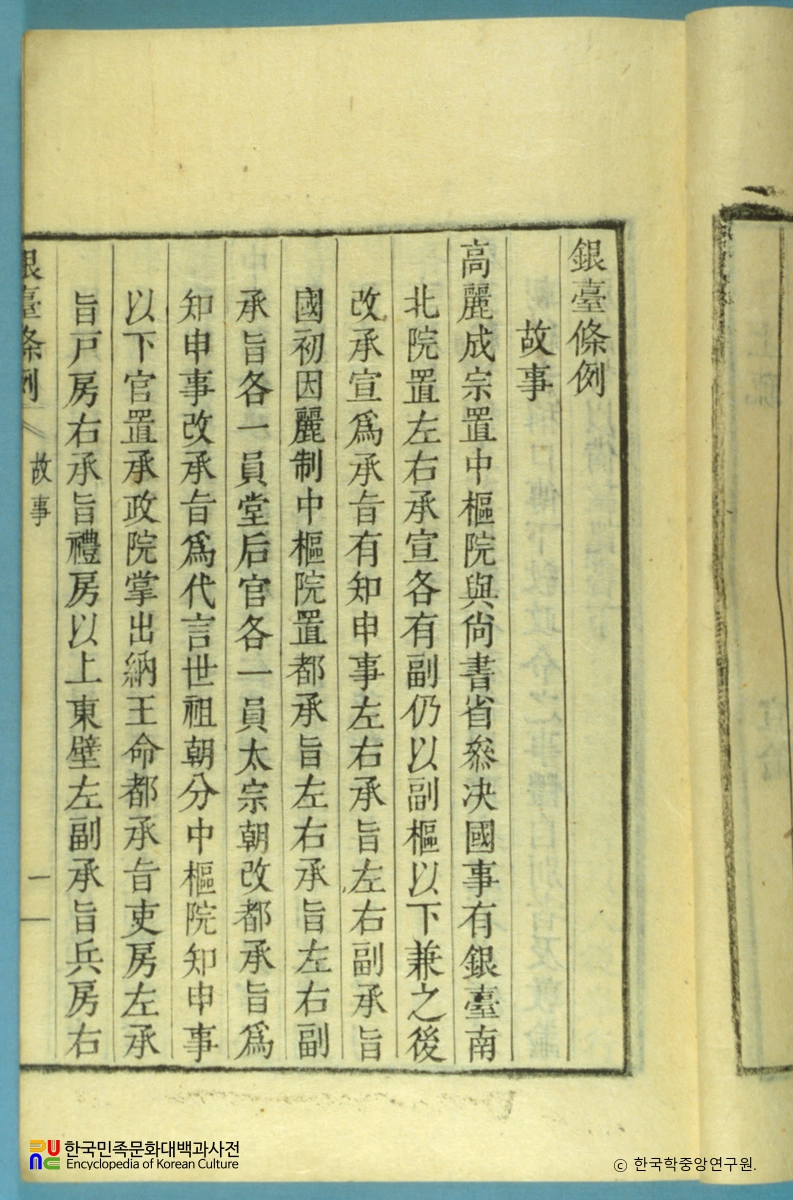 銀臺條例
故事
高麗成宗置中樞院與尙書省叅决國事有銀臺南
北院置左右承宣各有副仍以副樞以下兼之後
改承宣爲承旨有知申事左右承旨左右副承旨
國初因麗制中樞院置都承旨左右承旨左右副
承旨各一員堂后官各一員太宗朝改都承旨爲
知申事改承旨爲代言世祖朝分中樞院知申事
以下官置承政院掌出納王命都承旨吏房左承
旨戶房右承旨禮房以上東壁左副承旨兵房右
銀臺條例 故事 一
한국민족문화대백과사전
Encyclopedia of Korean Culture
© 한국학중앙연구원.